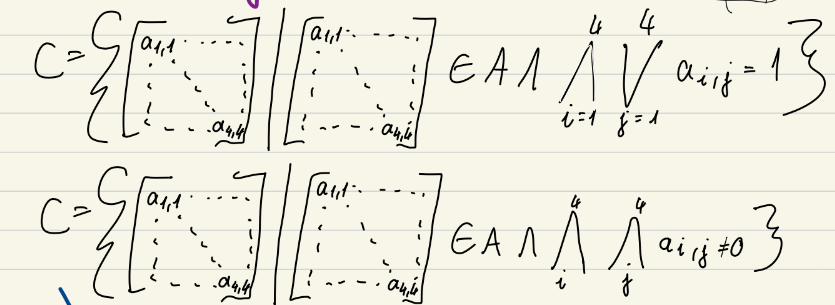 C = { [a_{1,1} ... a_{4,4}] | [a_{1,1} ... a_{4,4}] ∈ A ∧ ⋀_{i=1}^{4} ⋁_{j=1}^{4} a_{i,j} = 1 }
C = { [a_{1,1} ... a_{4,4}] | [a_{1,1} ... a_{4,4}] ∈ A ∧ ⋀_{i}^{4} ⋀_{j}^{4} a_{i,j} ≠ 0 }